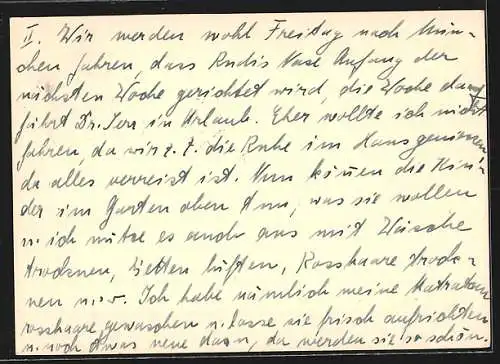 II. Wir werden wohl Freitag nach Mün-
chen fahren, dass Rudis Nase Anfang der
nächsten Woche gerichtet wird, die Woche darauf
fährt Dr. in Urlaub. Eher wollte ich nicht
fahren, da wir z. Z. die Ruhe im Haus geniessen
da alles verreist ist. Nun können die Kin-
der im Garten oben tun, was sie wollen
u. ich nütze es auch aus mit Wäsche
trocknen, Betten lüften, Rosshaare trock-
nen u.s.w. Ich habe nämlich meine Matratzen
rosshaare, gewaschen u. lasse sie frisch aufrichten
u. noch etwas neue dazu, da werden sie so schön.